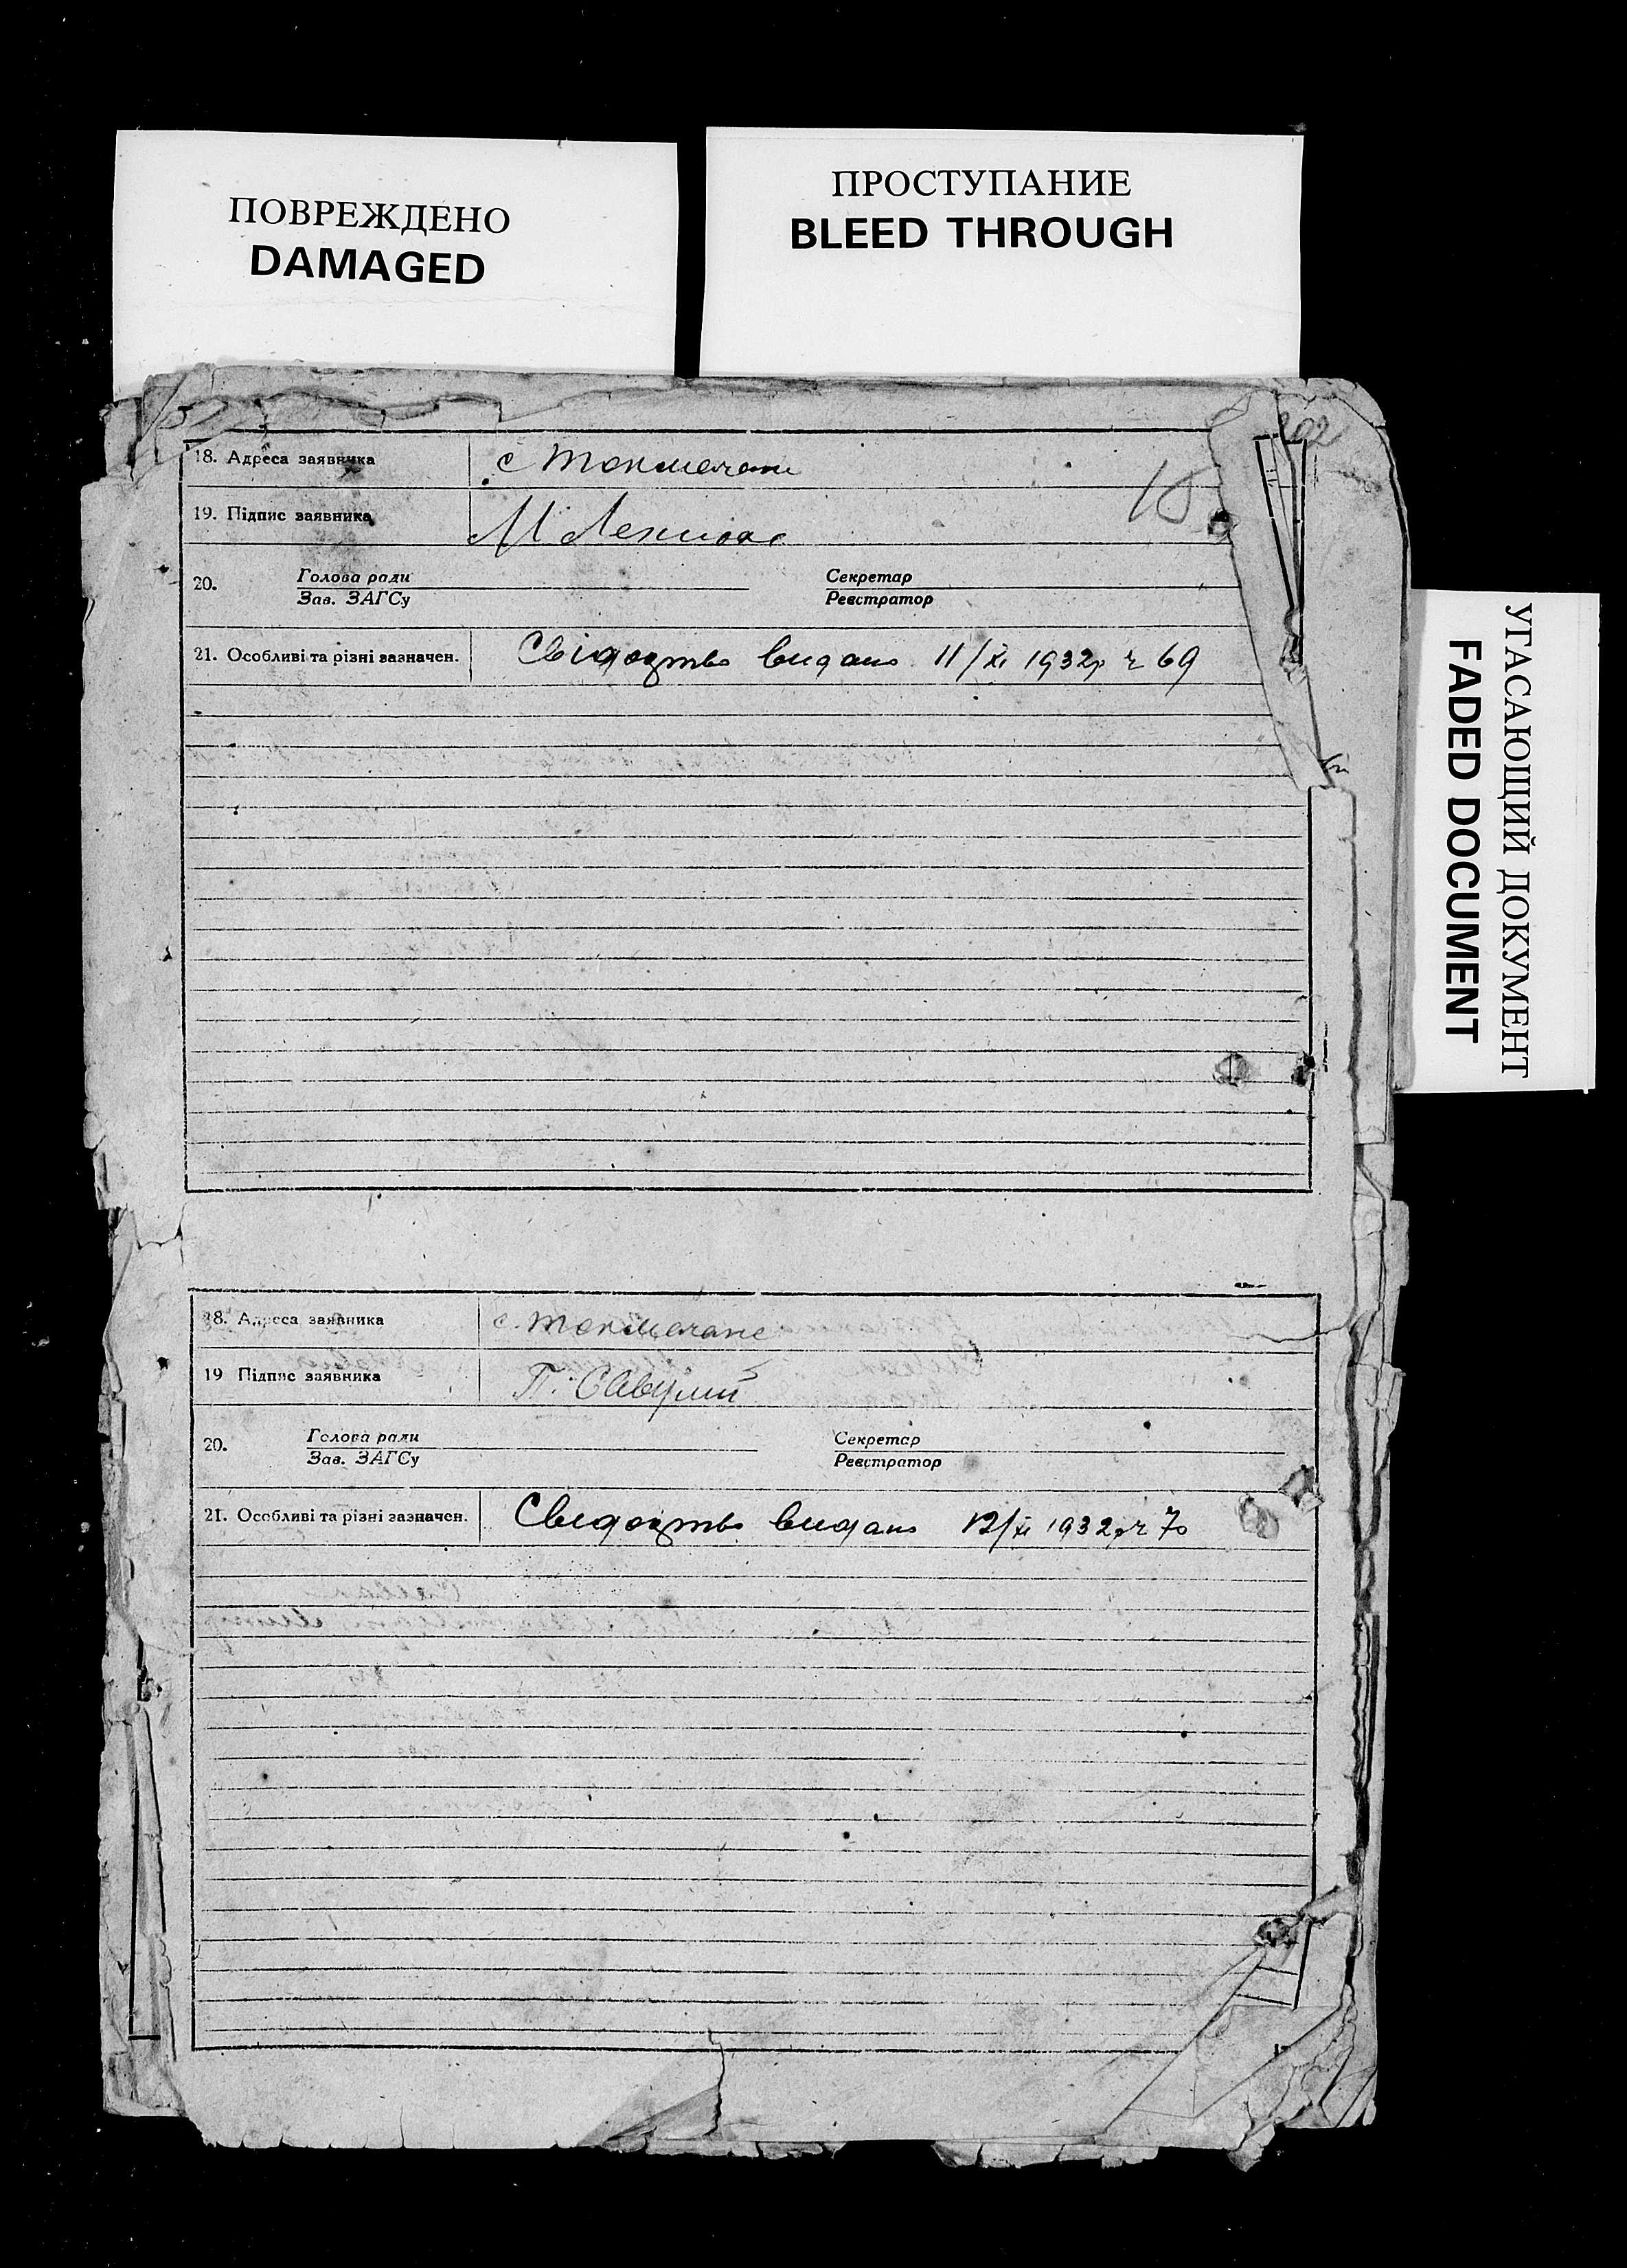 ПОВРЕЖДЕНО
DAMAGED
ПРОСТУПАНИЕ
BLEED THROUGH
УГАСАЮЩИЙ ДОКУМЕНТ
FADED DOCUMENT
202
18. Адреса заявника с
15
19. Підпис заявника М
20. Голова ради Секретар
Зав. ЗАГСу Реєстратор
21. Особливі та різні зазначен. Свідоцтво видано 11/XI 1932р ч 69
18. Адреса заявника с.
19 Підпис заявника П. Савулий
20. Голова ради Секретар
Зав. ЗАГСу Реєстратор
21. Особливі та різні зазначен. Свидоцтво видано 12/XI 1932р ч 70